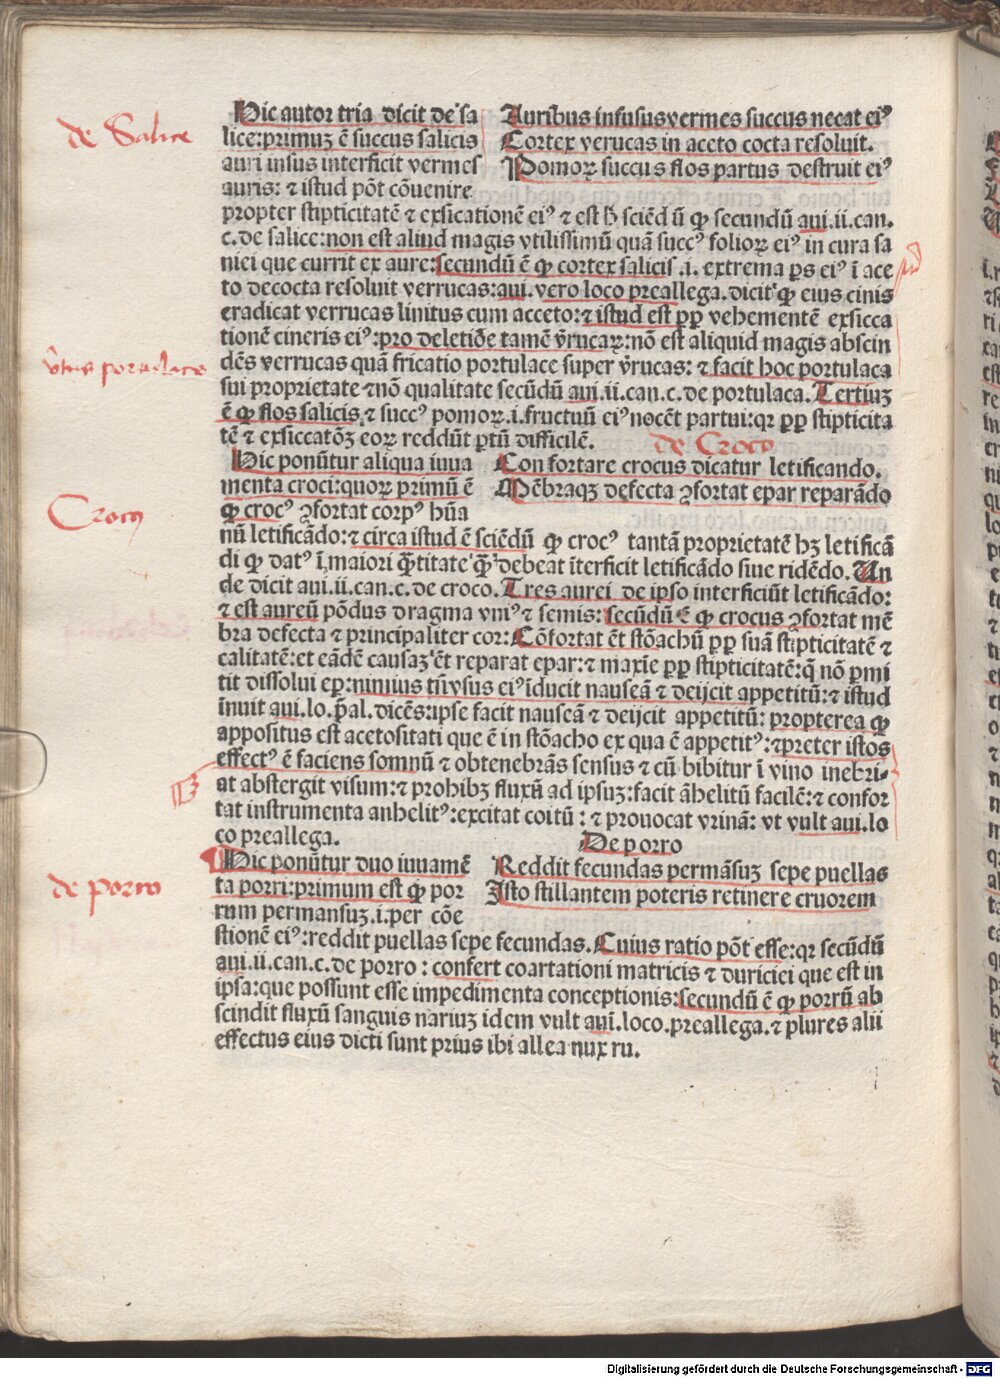 de Salice
Hic autor tria dicit de sa
lice:primuʒ ē succus salicis
auri insus interficit vermes
auris: ⁊ istud pōt cōuenire
Auribus infusus vermes succus necat ei⁹
Cortex verucas in aceto cocta resoluit.
Pomoꝝ succus flos partus destruit ei⁹
propter stipticitatē ⁊ exsicationē ei⁹ ⁊ est h̄ sciēd ū ꝙ secundū aui.ii.can.
c.de salice:non est aliud magis vtilissimū quā succ⁹ folioꝝ ei⁹ in cura sa
niei que currit ex aure:secundū ē ꝙ cortex salicis .i. extrema ꝑs ei⁹ ī ace
to decocta resoluit verrucas:aui.vero loco preallega.dicit ꝙ eius cinis
eradicat verrucas linitus cum acceto:⁊ istud est ꝓꝑ vehementē exsicca
tionē cineris ei⁹:pro deletiōe tamē v̄rucaꝝ:nō est aliquid magis abscin
dēs verrucas quā fricatio portulace super v̄rucas: ⁊ facit hoc portulaca
v̄tus portulace
sui proprietate ⁊ nō qualitate secūdū aui.ii.can.c.de portulaca.Tertiuʒ
ē ꝙ flos salicis ⁊ succ⁹ pomoꝝ.i.fructuū ei⁹ nocēt partui:qꝛ ꝓꝑ stipticita
tē ⁊ exsiccatōʒ eoꝝ reddūt ꝑtū difficilē.
de Croco
Hic ponūtur aliqua iuua
menta croci:quoꝝ primū ē
ꝙ croc⁹ ꝯfortat corp⁹ hūa
Con fortare crocus dicatur letificando.
Mēbraqʒ defecta ꝯfortat epar reparādo
Crocus
nū letificādo:⁊ circa istud ē sciēdū ꝙ croc⁹ tantā proprietatē hʒ letificā
di ꝙ dat⁹ ī maiori q̄titate q̄ debeat īterficit letificādo siue ridēdo.Un
de dicit aui.ii.can.c.de croco.Tres aurei de ipso interficiūt letificādo:
⁊ est aureū pōdus dragma vni⁹ ⁊ semis:secūdū ē ꝙ crocus ꝯfortat mē
bra defecta ⁊ principaliter cor:Cōfortat ēt stōachū ꝓꝑ suā stipticitatē ⁊
calitatē:et eādē causaʒ ēt reparat epar:⁊ maxīe ꝓꝑ stipticitatē:q̄ nō ꝑmi
tit dissolui eꝑ:nimius tn̄ vsus ei⁹ īducit nauseā ⁊ deijcit appetitū:⁊ istud
īnuit aui.lo.p̄al.dicēs:ipse facit nauseā ⁊ deijcit appetitū: propterea ꝙ
appositus est acetositati que ē in stōacho ex qua ē appetit⁹:⁊preter istos
effect⁹ ē faciens somnū ⁊ obtenebrās sensus ⁊ cū bibitur ī vino inebri-
at abstergit visum:⁊ prohibʒ fluxū ad ipsuʒ:facit āhelitū facilē:⁊ confor
tat instrumenta anhelit⁹:excitat coitū : ⁊ prouocat vrinā: vt vult aui.lo
co preallega.
De porro
de porro
Hic ponūtur duo iuuamē
ta porri:primum est ꝙ por
rum permansuʒ.i.per cōe
Reddit fecundas permāsuʒ sepe puellas
Isto stillantem poteris retinere cruorem
stionē ei⁹:reddit puellas sepe fecundas.Cuius ratio pōt esse:qꝛ secūdū
aui.ii.can.c.de porro : confert coartationi matricis ⁊ duricici que est in
ipsa:que possunt esse impedimenta conceptionis:secundū ē ꝙ porrū ab
scindit fluxū sanguis nariuʒ idem vult aui.loco.preallega.⁊ plures alii
effectus eius dicti sunt prius ibi allea nux ru.
Digitalisierung gefördert durch die Deutsche Forschungsgemeinschaft - DFG